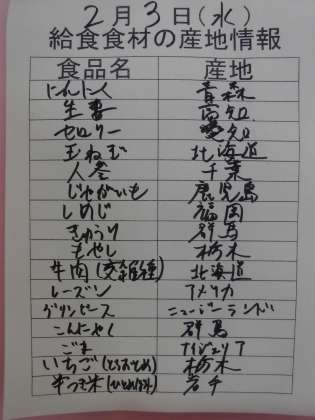 2月3日(水)
給食食材の産地情報
食品名 産地
にんにく 青森
生姜 高知
セロリー 愛知
玉ねぎ 北海道
人参 千葉
じゃがいも 鹿児島
しめじ 福岡
きゅうり 群馬
もやし 栃木
牛肉(交雑種) 北海道
レーズン アメリカ
グリンピース ニュージーランド
こんにゃく 群馬
ごま ナイジェリア
いちご(とちおとめ) 栃木
半つき米(ひとめぼれ) 岩手